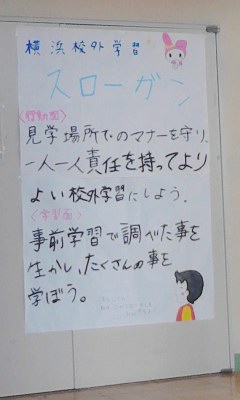 横浜校外学習
スローガン
〈行動面〉
見学場所でのマナーを守り、
一人一人責任を持ってより
よい校外学習にしよう。
〈学習面〉
事前学習で調べた事を
生かし、たくさんの事を
学ぼう。